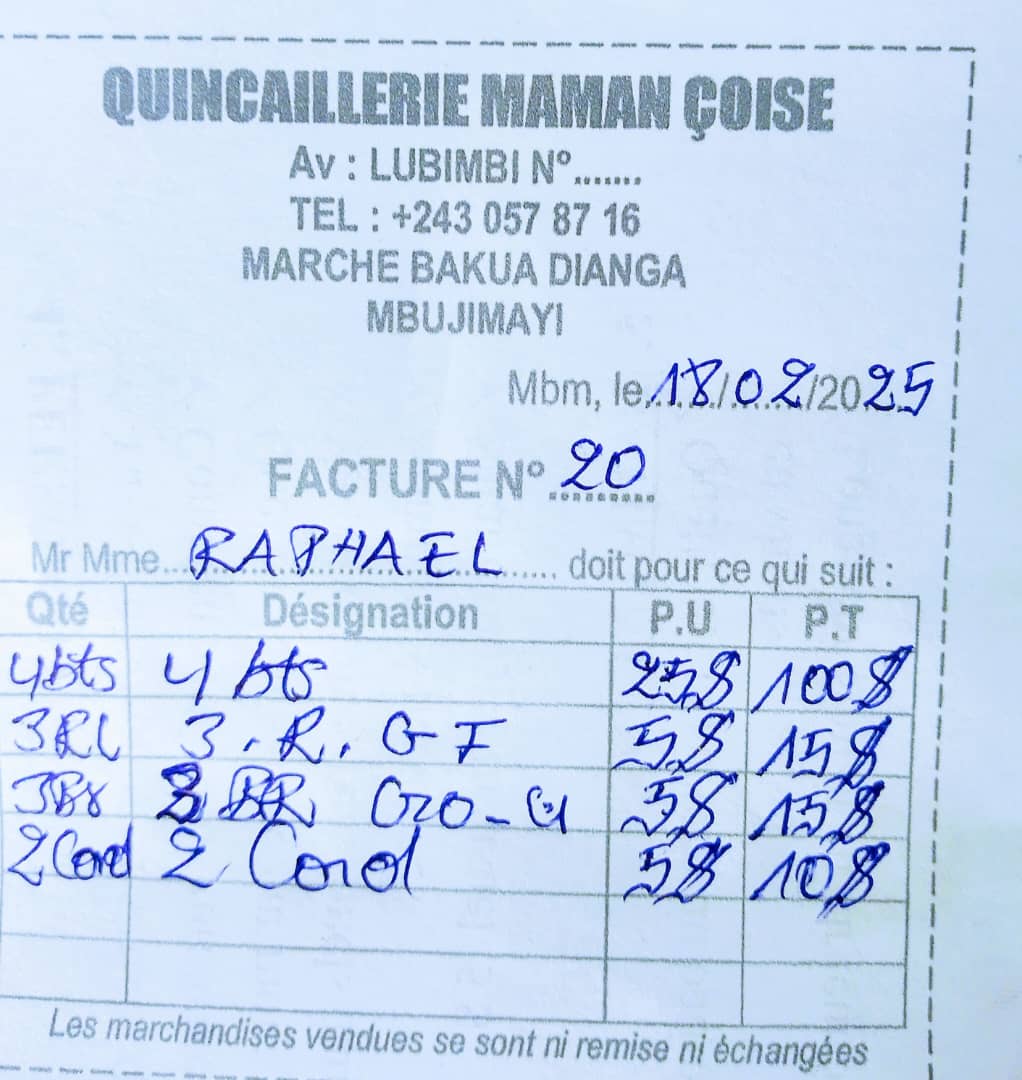 QUINCAILLERIE MAMAN ÇOISE
Av : LUBIMBI N°.......
TEL : +243 057 87 16
MARCHE BAKUA DIANGA
MBUJIMAYI
Mbm, le 18/02/2025
FACTURE N° 20
Mr Mme RAPHAEL doit pour ce qui suit :
Qté Désignation P.U P.T
4bts 4 bts 25$ 100$
3RL 3.R. GF 5$ 15$
3Bx 3 5$ 15$
2Cord 2 Cord 5$ 10$
Les marchandises vendues se sont ni remise ni échangées